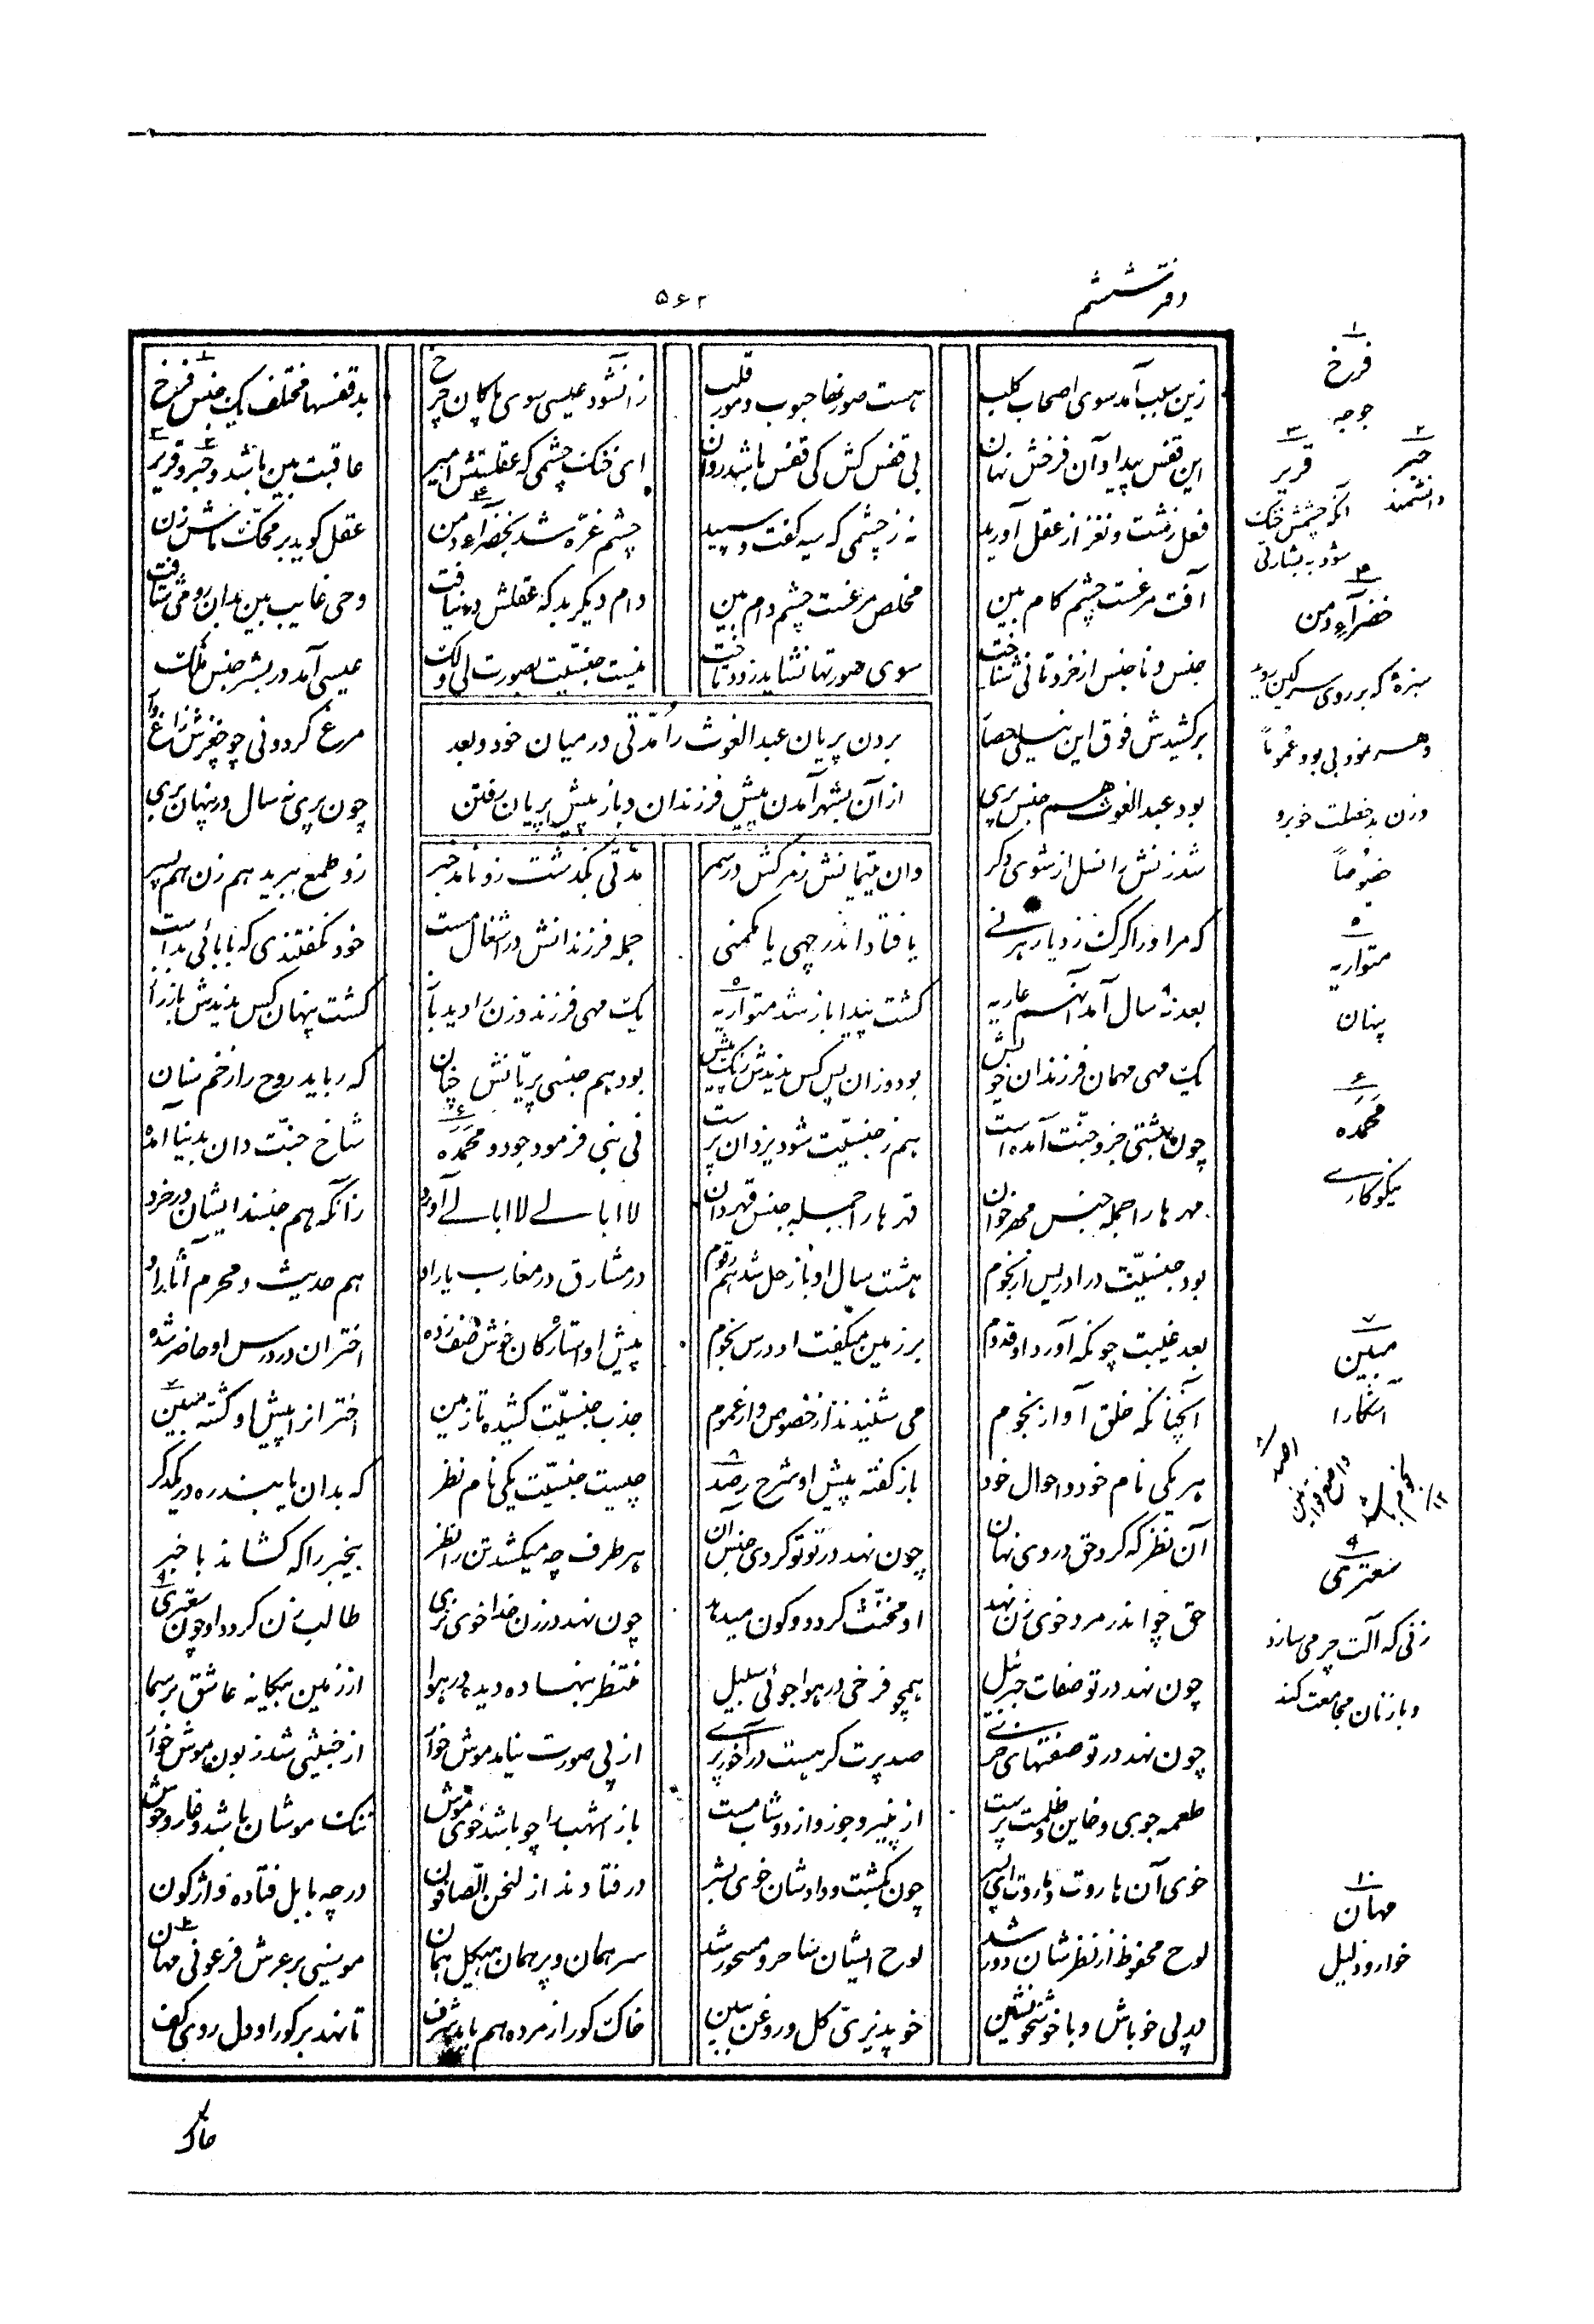 دفتر ششم
۵۶۲
زین سبب آمد سوی اصحاب کلب
هست صورتها حبوب و مور قلب
زان شود عیسی سوی پاکان چرخ
بد قفسها مختلف یک جنس فرخ
این قفس پیدا و آن فرخش نهان
بی قفس کش کی قفس باشد روان
ای خنک چشمی که عقلستش امیر
عاقبت بین باشد و حبر و قریر
فعل زشت و نغز از عقل آورید
نه ز چشمی که سیه گفت و سپید
چشم غرّه شد بخضرآء دمن
عقل گوید بر محکّ ماش زن
آفت مرغست چشم کام بین
مخلص مرغست چشم دام بین
دام دیگر بد که عقلش در نیافت
وحی غایب بین بدان رو می شتافت
جنس و ناجنس از خرد تانی شناخت
سوی صورتها نشاید زود تاخت
نیست جنسیّت بصورت لی و لک
عیسی آمد در بشر جنس ملک
برکشیدش فوق این نیلی حصار
مرغ گردونی چو چغزش زاغ وار
بردن پریان عبد الغوث را مدّتی در میان خود و بعد
از آن بشهر آمدن پیش فرزندان و باز پیش پریان رفتن
بود عبد الغوث هم جنس پری
چون پری نه سال در پنهان پری
شد زنش را نسل از شوی دگر
وان یتیمانش ز مرگش در سمر
مدّتی بگذشت زو نامد خبر
زو طمع ببرید هم زن هم پسر
که مر او را گرگ زد یا رهزنی
یا فتاد اندر چهی یا مکمنی
جمله فرزندانش در اشغال مست
خود نگفتندی که بابائی بداست
بعد نه سال آمد او هم عاریه
گشت پیدا باز شد متواریه
یک مهی فرزند و زن را دید باز
گشت پنهان کس ندیدش باز راز
یک مهی مهمان فرزندان خویش
بود و زان پس کس ندیدش رنگ بیش
بود هم جنسی پریّانش چنان
که رباید روح را زخم سنان
چون بهشتی جزو جنّت آمده است
هم ز جنسیّت شود یزدان پرست
نی نبی فرمود جود و محمده
شاخ جنّت دان بدنیا آمده
مهرها را جمله جنس مهر خوان
قهرها را جمله جنس قهر دان
لاابالی لاابالی آورد
زانکه هم جنسند ایشان در خرد
بود جنسیّت در ادریس از نجوم
هشت سال او با زحل شد هم قدوم
در مشارق در مغارب یار او
هم حدیث و محرم آثار او
بعد غیبت چونکه آورد او قدوم
بر زمین میگفت او درس نجوم
پیش او استارگان خوش صف زده
اختران در درس او حاضر شده
آنچنانکه خلق آواز نجوم
می شنیدند از خصوص و از عموم
جذب جنسیّت کشیده تا زمین
اختران را پیش او گشته مبین
هر یکی نام خود و احوال خود
باز گفته پیش او شرح رصد
چیست جنسیّت یکی نام نظر
که بدان یابند ره در یکدگر
آن نظر که کرد حق در وی نهان
چون نهد در تو تو گردی جنس آن
هر طرف چه میکشد تن را نظر
بیخبر را که کشاند با خبر
حق چو اندر مرد خوی زن نهد
او مخنّث گردد و کون میدهد
چون نهد در زن خدا خوی نری
طالب زن گردد او چون سعتری
چون نهد در تو صفات جبرئیل
همچو فرخی در هوا جوئی سبیل
منتظر بنهاده دیده در هوا
از زمین بیگانه عاشق بر سما
چون نهد در تو صفتهای خری
صد پرت گر هست در آخور پری
از پی صورت نیامد موش خوار
از خبیثی شد زبون موش خوار
طعمه جوی و خاین و ظلمت پرست
از پنیر و جوز و از دوشاب مست
باز اشهب را چو باشد خوی موش
ننگ موشان باشد و عار وحوش
خوی آن هاروت و ماروت ای پسر
چون بگشت و دادشان خوی بشر
در فتادند از لنحن الصّافون
در چه بابل فتاده واژگون
لوح محفوظ از نظرشان دور شد
لوح ایشان ساحر و مسحور شد
سر همان و پر همان هیکل همان
موسیی بر عرش فرعونی مهان
در پی خو باش و با خوشخو نشین
خو پذیریّ گل و روغن ببین
خاک گور از مرده هم یابد شرف
تا نهد بر گور او دل روی کف
۱
فرخ
جوجه
۲
حبر
دانشمند
۳
قریر
آنکه چشمش خنک
شود به بشارتی
۴
خضرآء دمن
سبزهٔ که بر روی سرگین روید
و هر نمود بی بود عموماً
و زن بد خصلت خوبرو
خصوصاً
۵
متواریه
پنهان
۶
محمده
نیکوکاری
۷
مبین
آشکارا
۹
سعتری
زنی که آلت چرمی سازد
و با زنان مجامعت کند
۱۰
مهان
خوار و ذلیل
خاک